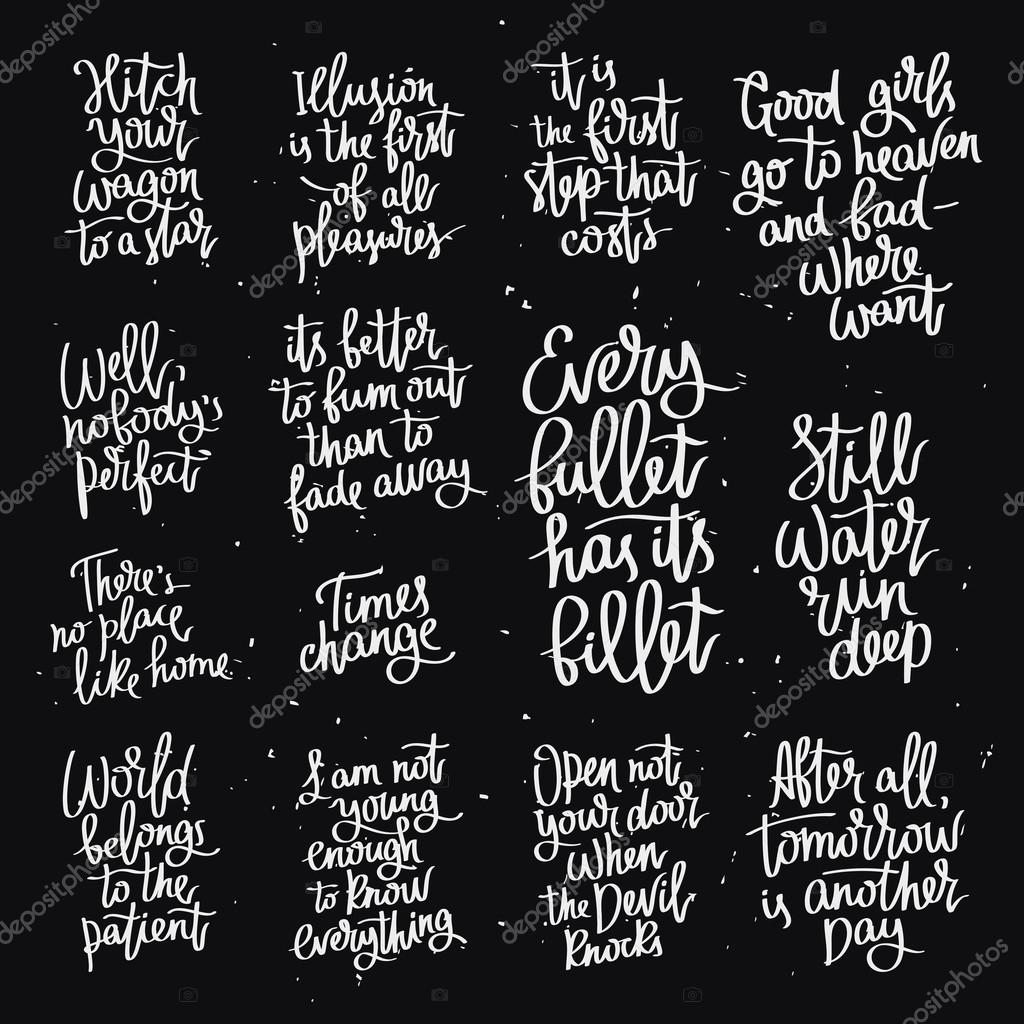 Hitch
your
wagon
to a star
Illusion
is the first
of all
pleasures
it is
the first
step that
costs
Good girls
go to heaven
and bad-
where
want
Well,
nobody's
perfect
its better
to burn out
than to
fade away
Every
bullet
has its
billet
Still
Water
run
deep
There's
no place
like home
Times
change
World
belongs
to the
patient
I am not
young
enough
to know
everything
Open not
your door
When
the Devil
knocks
After all,
tomorrow
is another
Day
depositphotos